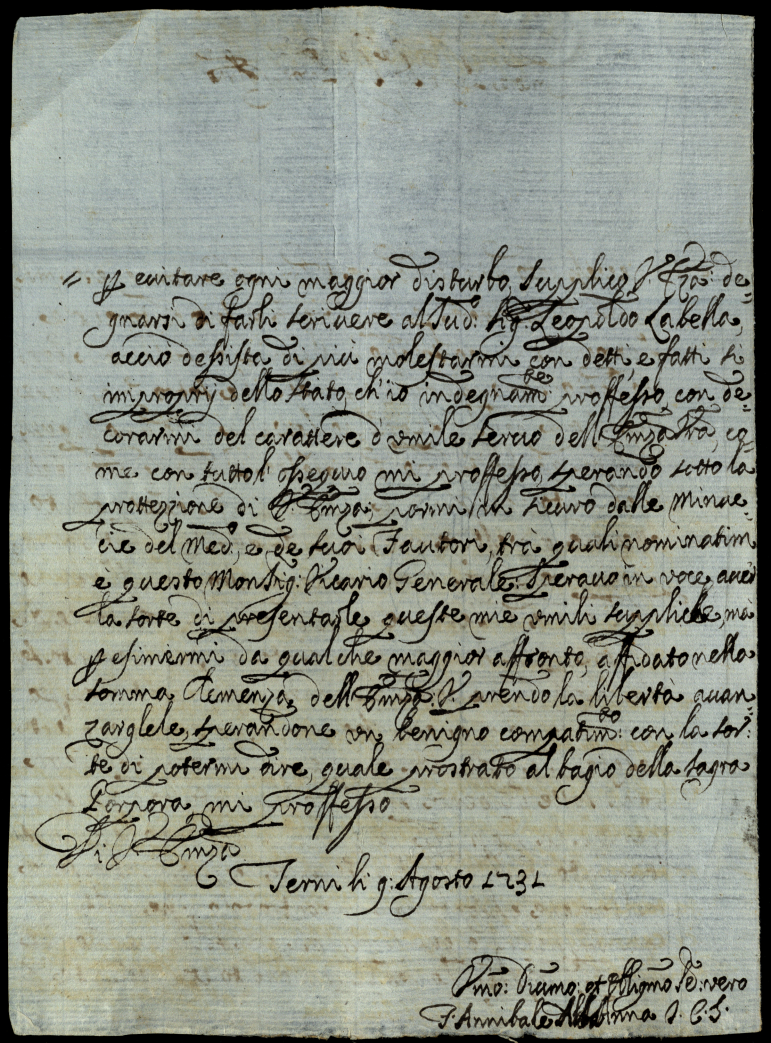 = p evitare ogni maggior disturbo, supplico V. Emza: de=
gnarsi di farli scrivere al sud:o Sig: Leopoldo Labella,
acciò dessista di più molestarmi con detti, e fatti si
improprij dello stato, ch'io indegnam:te proffesso, con de=
corarmi del carattere d'umile servo dell'Emza Vra, co=
me con tutto l'ossequio mi proffesso, sperando sotto la
prottezzione di V. Emza: pormi in sicuro dalle minac=
cie del Med:o, e de suoi Fautori, trà quali nominatim
è questo Monsig: Vicario Generale. Speravo in voce aver
la sorte di presentarle queste mie umili suppliche mà
p esimermi da qualche maggior affronto, affidato nella
somma Clemenza dell'Emza: V. prendo la libertà avan=
zarglele, sperandone un benigno compatim:to: con la sor=
te di potermi dire, quale prostrato al bagio della sagra
Porpora mi proffesso
Di V. Emza
Terni li 9: Agosto 1731
Umo: Divmo: et Obligmo Se: vero
F. Annibale